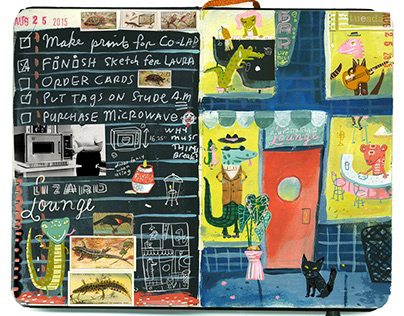 AUG 25 2015
Make print for CO-LAB
FINISH SKetch for LAURA
ORDER CARDS
PUT TAGS ON STUDE A.M
PURCHASE MICROWAVE
WHY
MUST
THINGS
BREAK?
LIZARD
Lounge
Tuesday
AUG 25 2015
Lounge